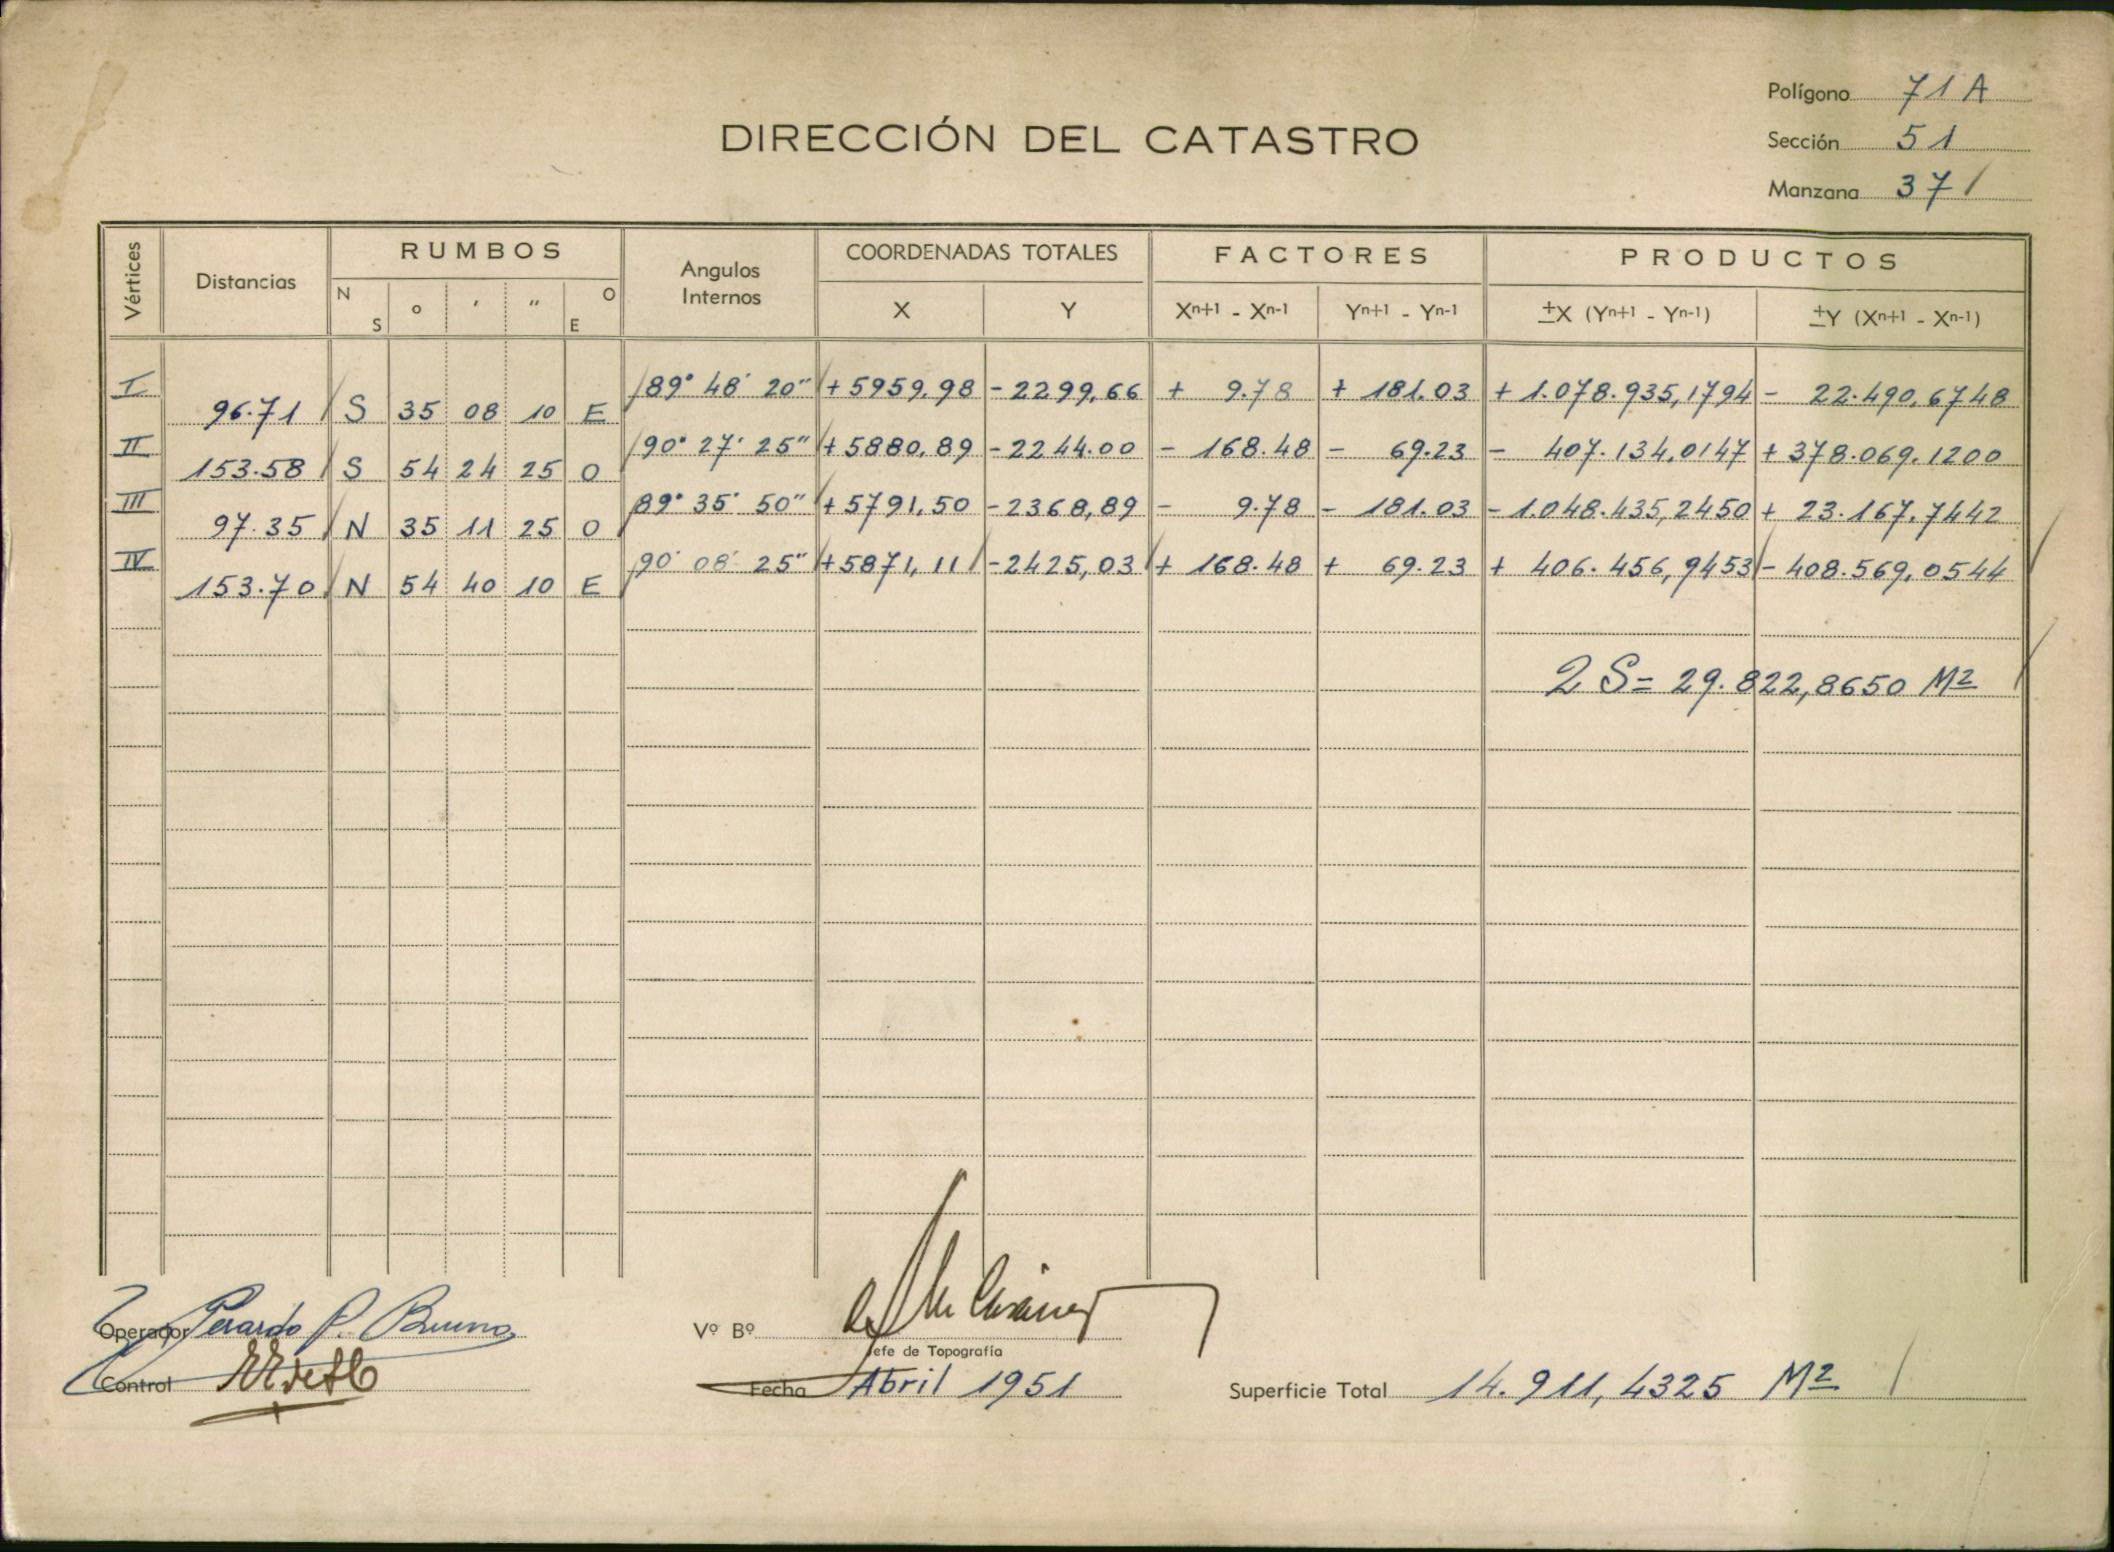 Polígono 71 A
DIRECCIÓN DEL CATASTRO
Sección 51
Manzana 37
Vértices Distancias RUMBOS N S ° ' " O E Angulos Internos COORDENADAS TOTALES X Y FACTORES Xn+1 - Xn-1 Yn+1 - Yn-1 PRODUCTOS ±X (Yn+1 - Yn-1) ±Y (Xn+1 - Xn-1)
I 89° 48' 20" +5959,98 -2299,66 + 9.78 + 181.03 + 1.078.935,1794 - 22.490,6748
96.71 S 35 08 10 E
II 90° 27' 25" +5880,89 -2244.00 - 168.48 - 69.23 - 407.134,0147 + 378.069.1200
153.58 S 54 24 25 O
III 89° 35' 50" +5791,50 -2368,89 - 9.78 - 181.03 - 1.048.435,2450 + 23.167,7442
97.35 N 35 11 25 O
IV 90° 08' 25" +5871,11 -2425,03 + 168.48 + 69.23 + 406.456,9453 - 408.569,0544
153.70 N 54 40 10 E
2 S = 29.822,8650 M2
Operador
Vº Bº
Jefe de Topografía
Control
Fecha Abril 1951
Superficie Total 14.911,4325 M2